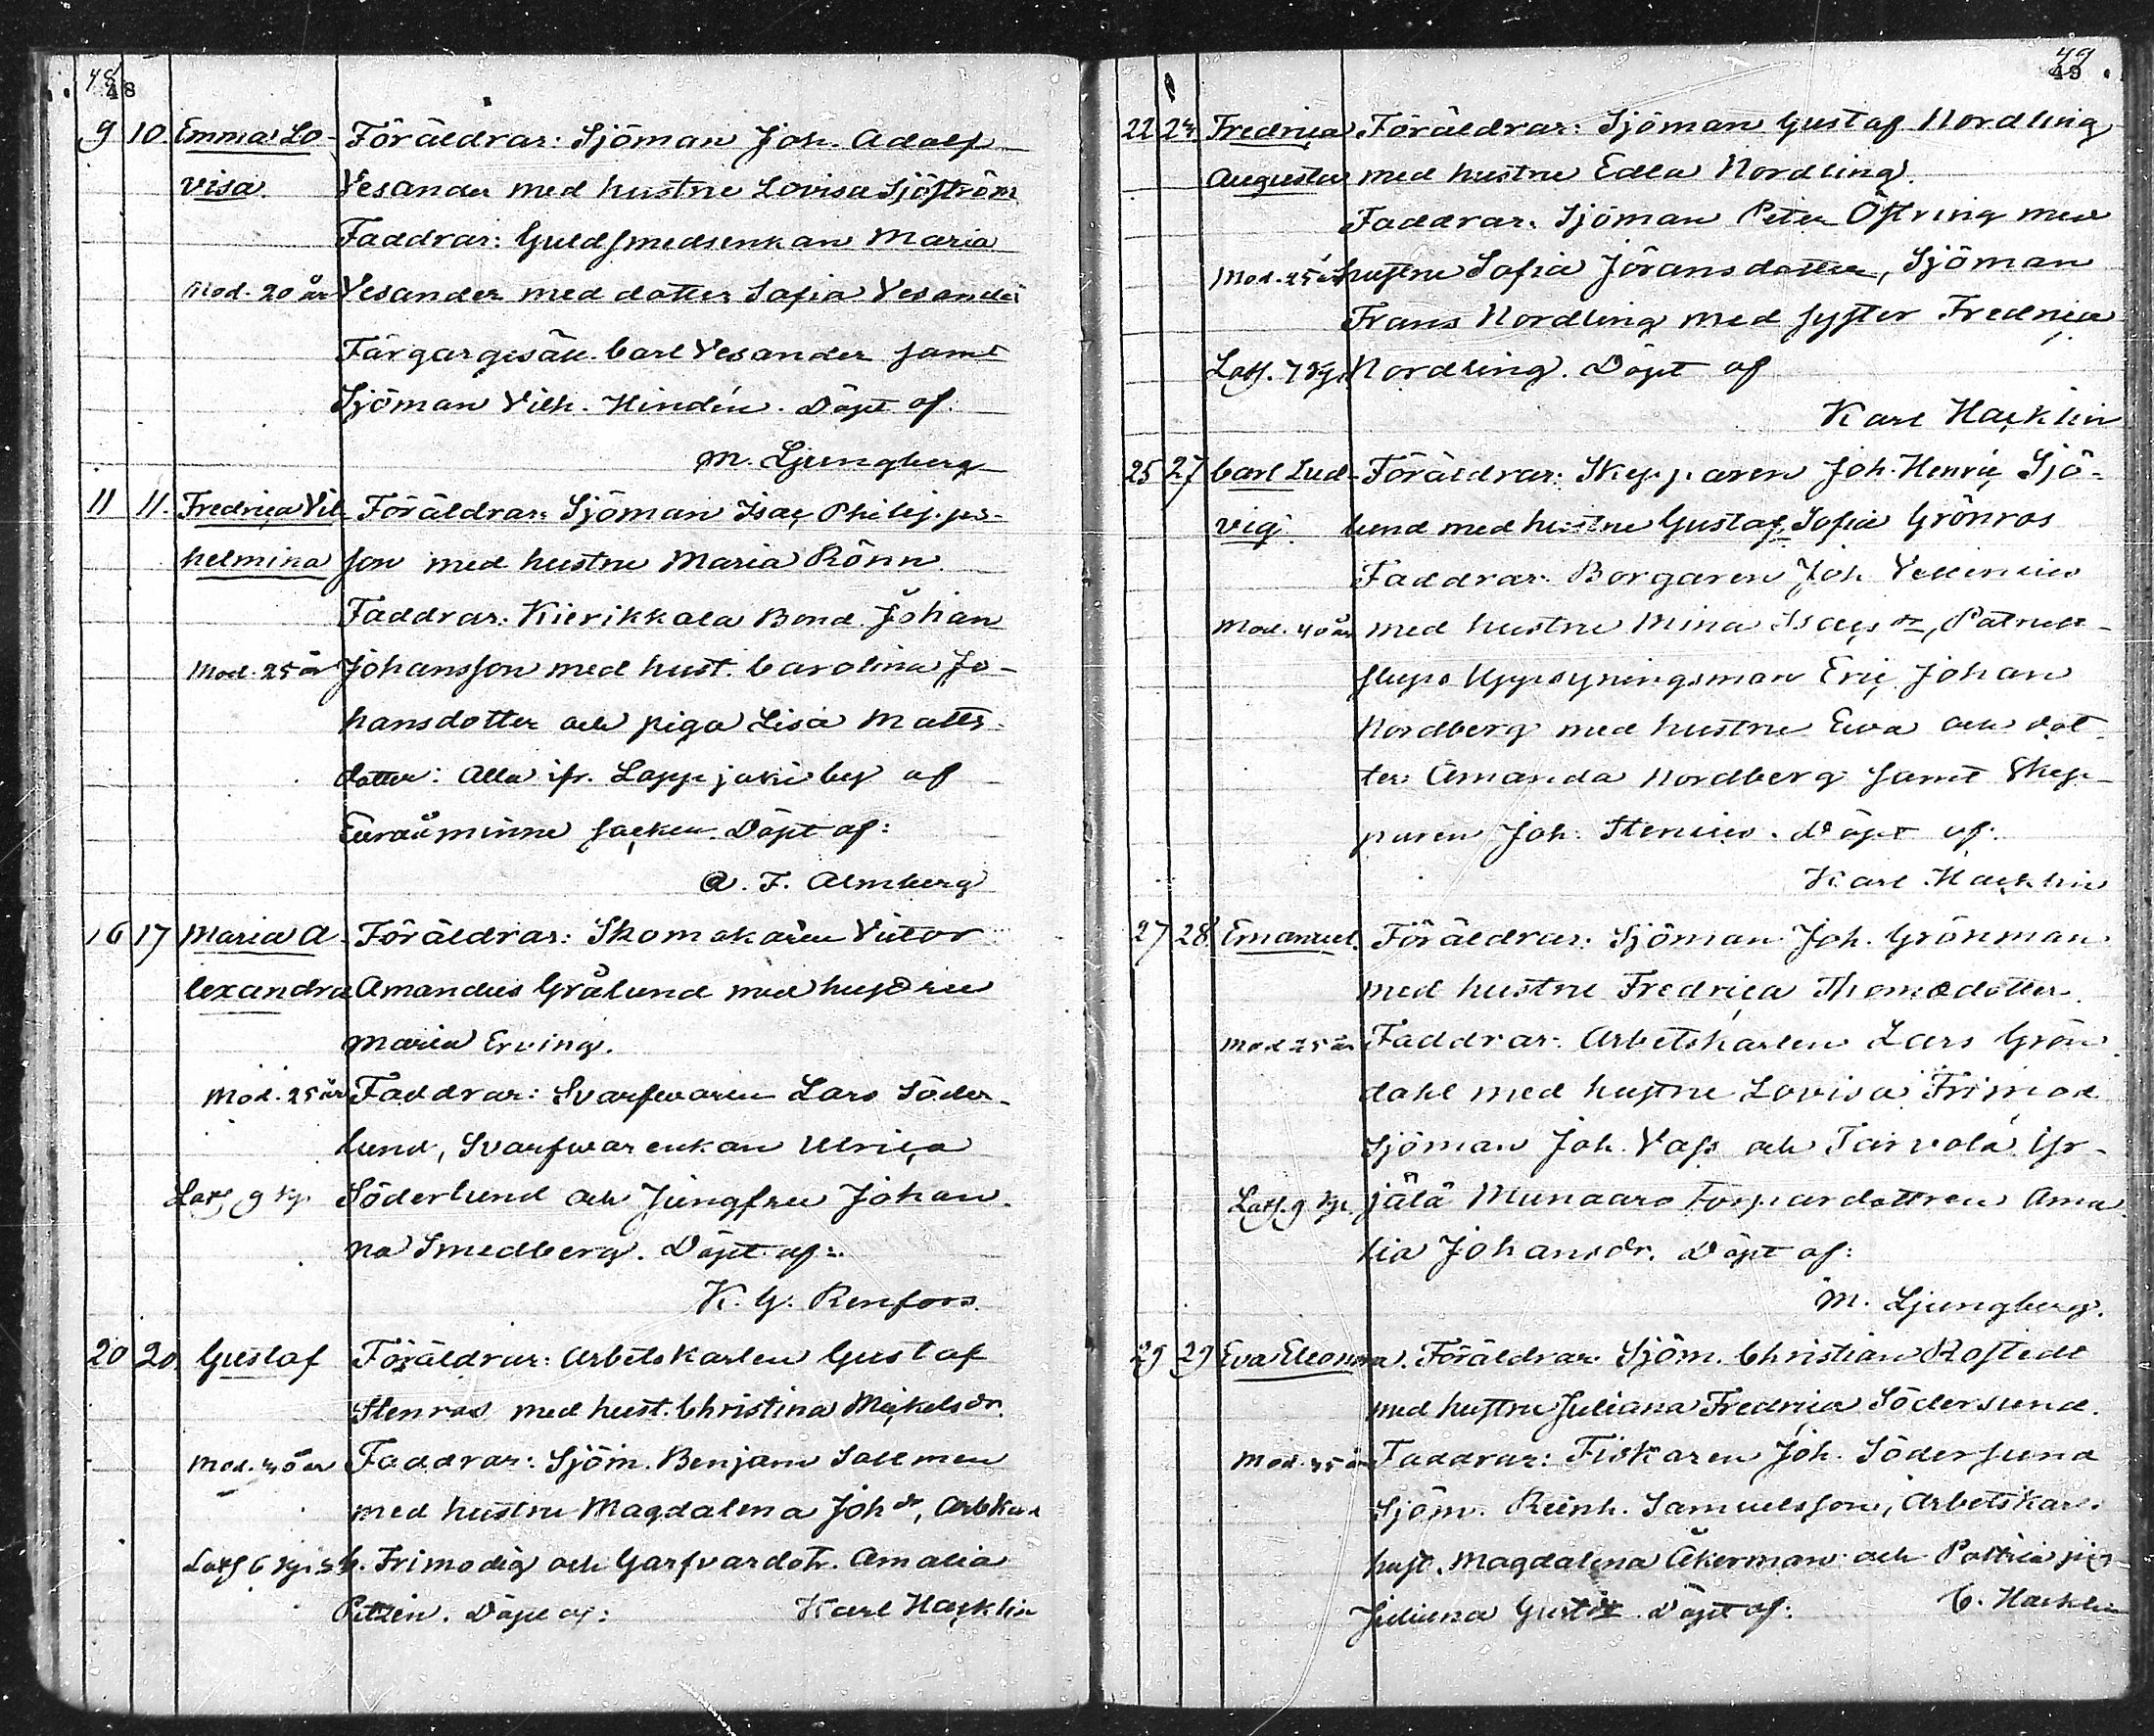 48
48
9 10. Emma Lo- Föräldrar: Sjöman Joh. Adolf
visa. Vesander med hustru Lovisa Sjöström
Faddrar: Guldsmedsenkan Maria
Mod. 20 år Vesander med dotter Sofia Vesander
Färgargesäll. Carl Vesander samt
Sjöman Vilh. Hindén. Döpt af:
M. Ljungberg
11 11. Fredrica Vil- Föräldrar: Sjöman Isac Philipps-
helmina son med hustru Maria Rönn.
Faddrar: Kierikkala Bond. Johan
Mod. 25 år Johansson med hust. Carolina Jo-
hansdotter och piga Lisa Matts-
dotter: Alla ifr. Lappijoki by af
Euraåminne socken. Döpt af:
A. F. Almberg
16 17 Maria A- Föräldrar: Skomakaren Victor
lexandra Amandus Grålund med hustru
Maria Erving.
Mod. 25 år Faddrar: Svarfvaren Lars Söder-
lund, Svarfvarenkan Ulrica
Latf. 9 kp. Söderlund och Jungfru Johan-
na Smedberg. Döpt af:
K. G. Renfors.
20 20. Gustaf Föräldrar: Arbetskarlen Gustaf
Stenros med hust. Christina Mickelsdr.
Mod. 40 år Faddrar: Sjöm. Benjam Sallmen
med hustru Magdalena Johdr, Arbkarl
Latf 6 kp. C. Frimodig och Garfvardotr. Amalia
Döpt af: Karl Hacklin
49
49
22 24. Fredrica Föräldrar: Sjöman Gustaf Nordling
Augusta med hustru Edla Nordling.
Faddrar: Sjöman Peter Östring med
Mod. 25 år hustru Sofia Jöransdotter, Sjöman
Frans Nordling med syster Fredrica
Latf. 7 kp. Nordling. Döpt af
Karl Hacklin
25 27 Carl Lud- Föräldrar: Skepparen Joh. Henric Sjö-
vig. lund med hustru Gustaf. Sofia Grönros
Faddrar: Borgaren Joh Vellenius
Mod. 40 år med hustru Mina Isacsdr, Patrull-
slups Uppsyningsman Eric Johan
Nordberg med hustru Eva och dot-
ter Amanda Nordberg samt Skep-
paren Joh. Stenius. Döpt af:
Karl Hacklin
27 28 Emanuel. Föräldrar: Sjöman Joh. Grönman
med hustru Fredrica Thomædotter.
Mod 25 år Faddrar: Arbetskarlen Lars Grön-
dahl med hustru Lovisa Frimod.
Sjöman Joh. Vass och Tarvola Yr-
Latf. 9 kp. jälä Munaars Torpardottren Ama-
lia Johansdr. Döpt af:
M. Ljungberg.
29 29 Eva Eleonora. Föräldrar Sjöm. Christian Rostedt
med hustru Juliana Fredrica Södersund.
Mod. 35 år Faddrar: Fiskaren Joh. Södersund
Sjöm. Reinh. Samuelsson, Arbetskar.
hust. Magdalena Åkerman och
Juliana Gustdr. Döpt af: C. Hacklin